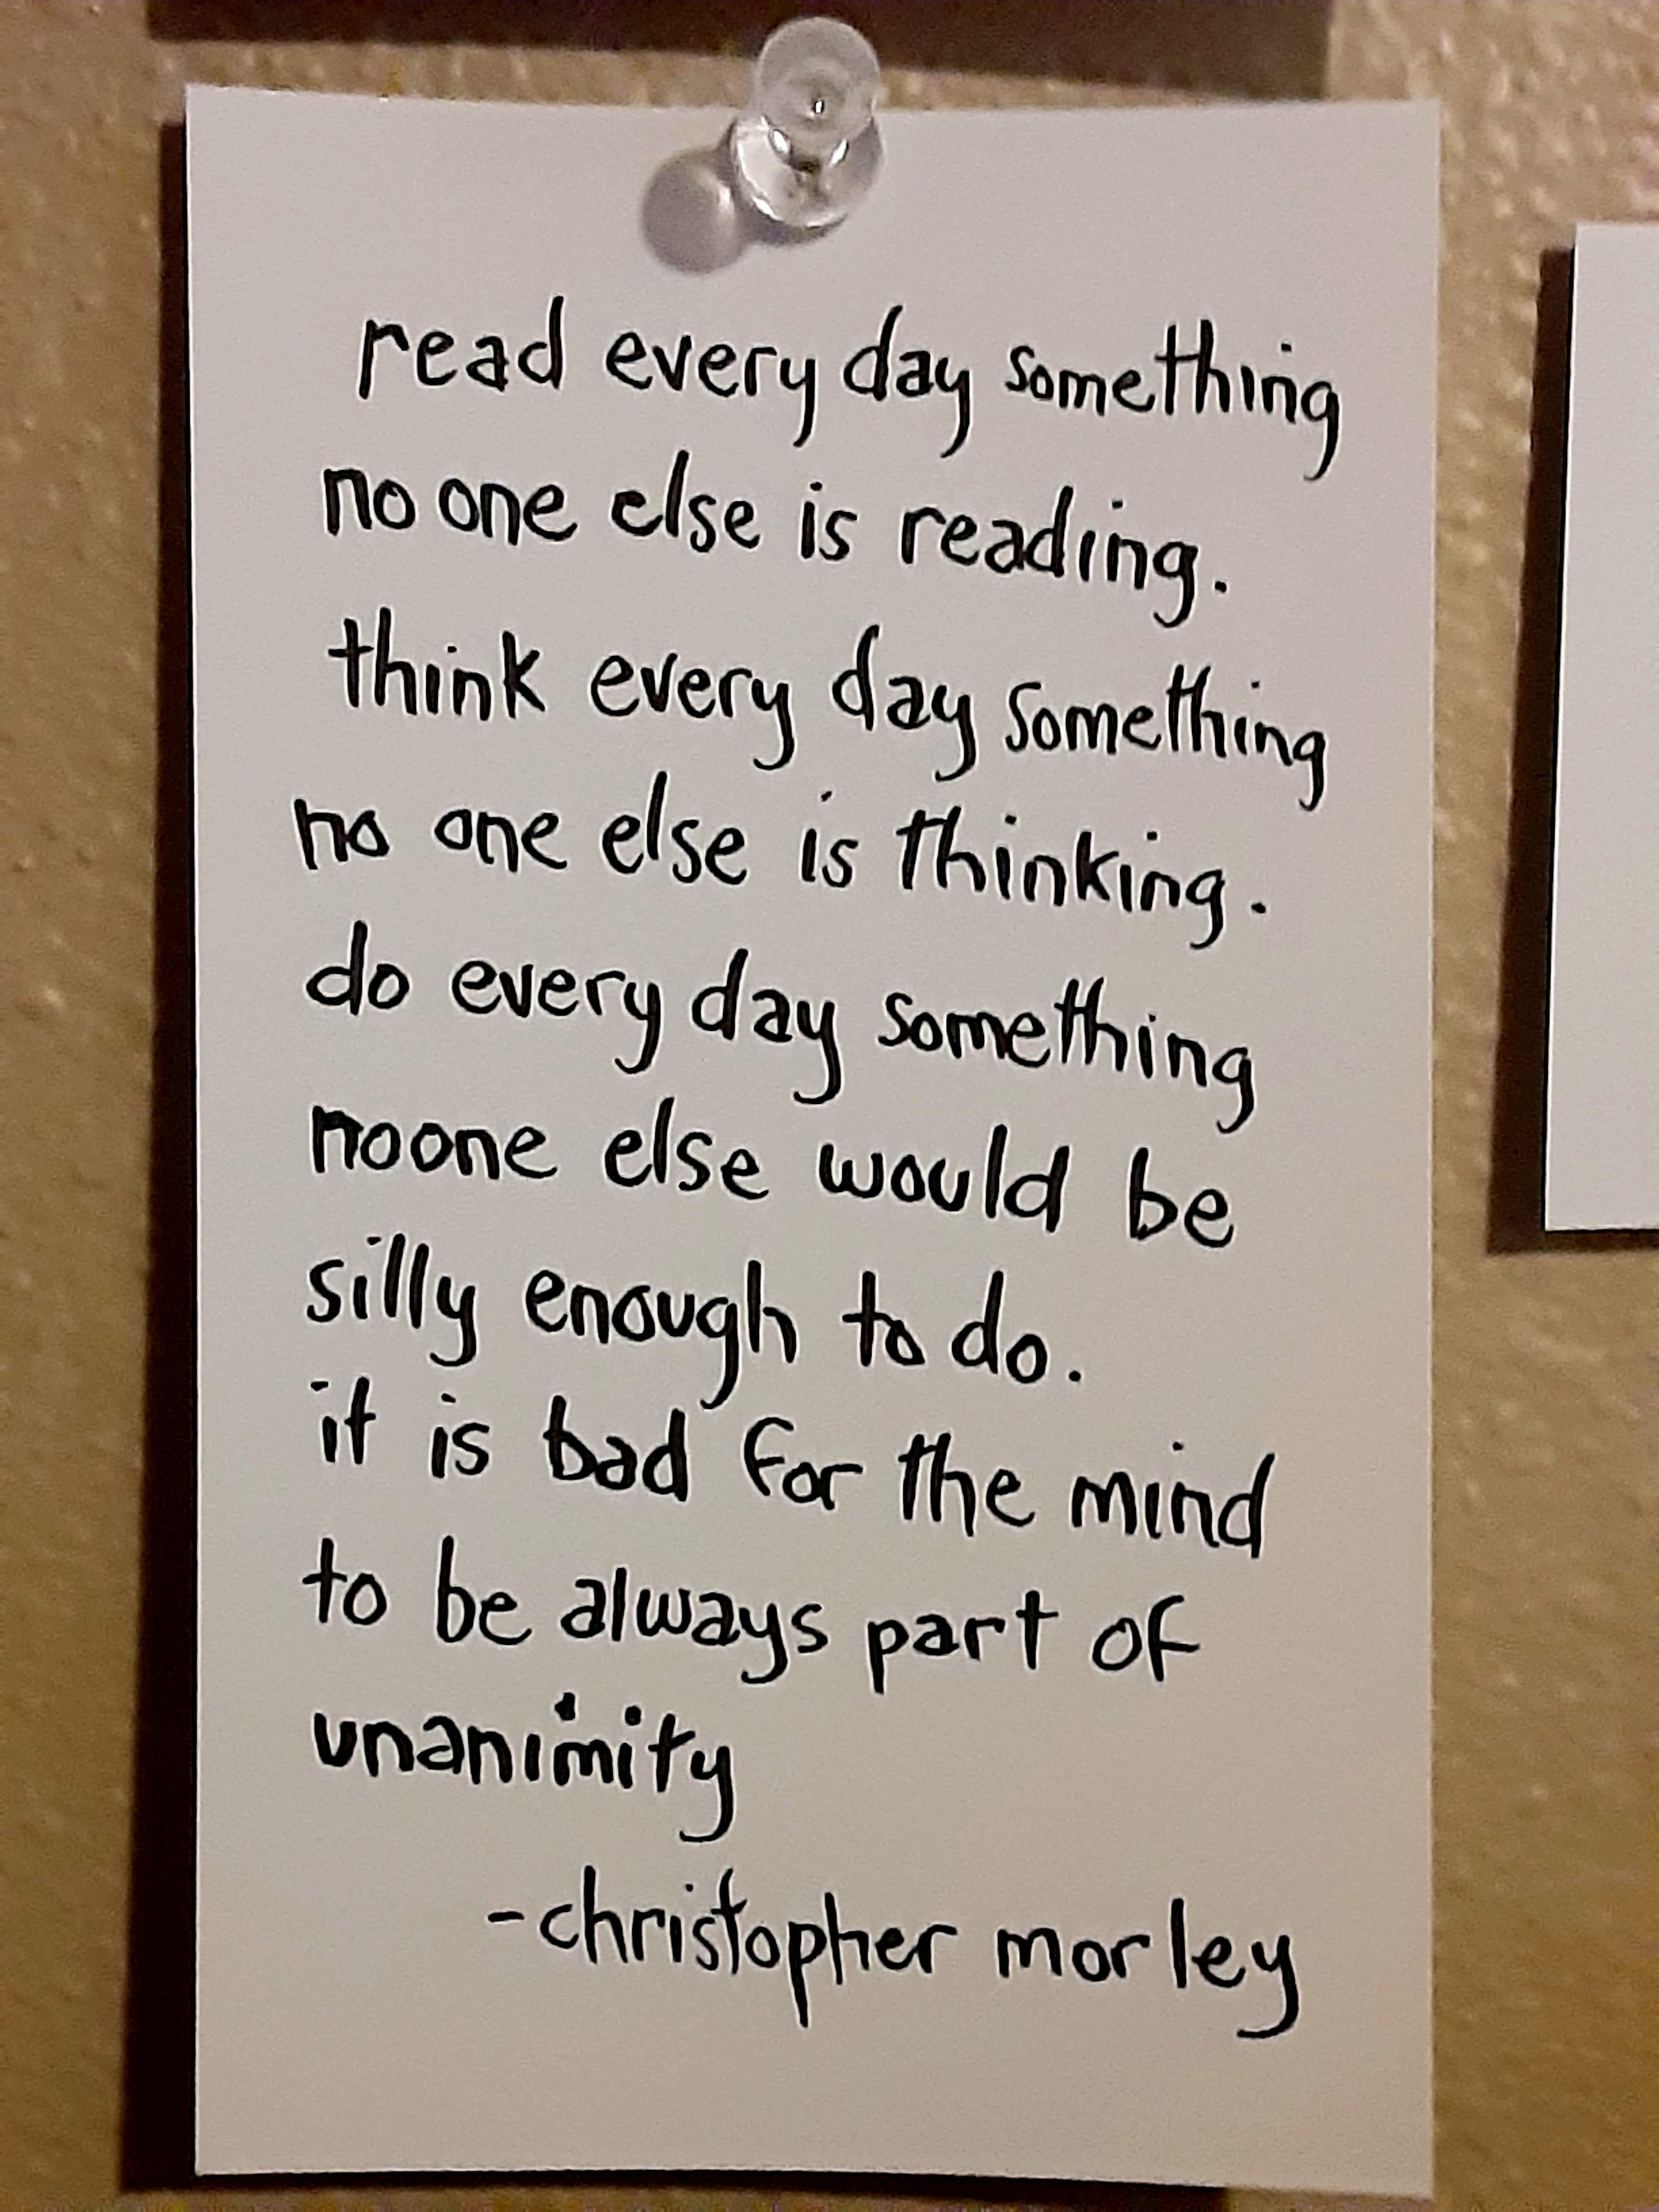 read every day something
no one else is reading.
think every day something
no one else is thinking.
do every day something
no one else would be
silly enough to do.
it is bad for the mind
to be always part of
unanimity
-christopher morley